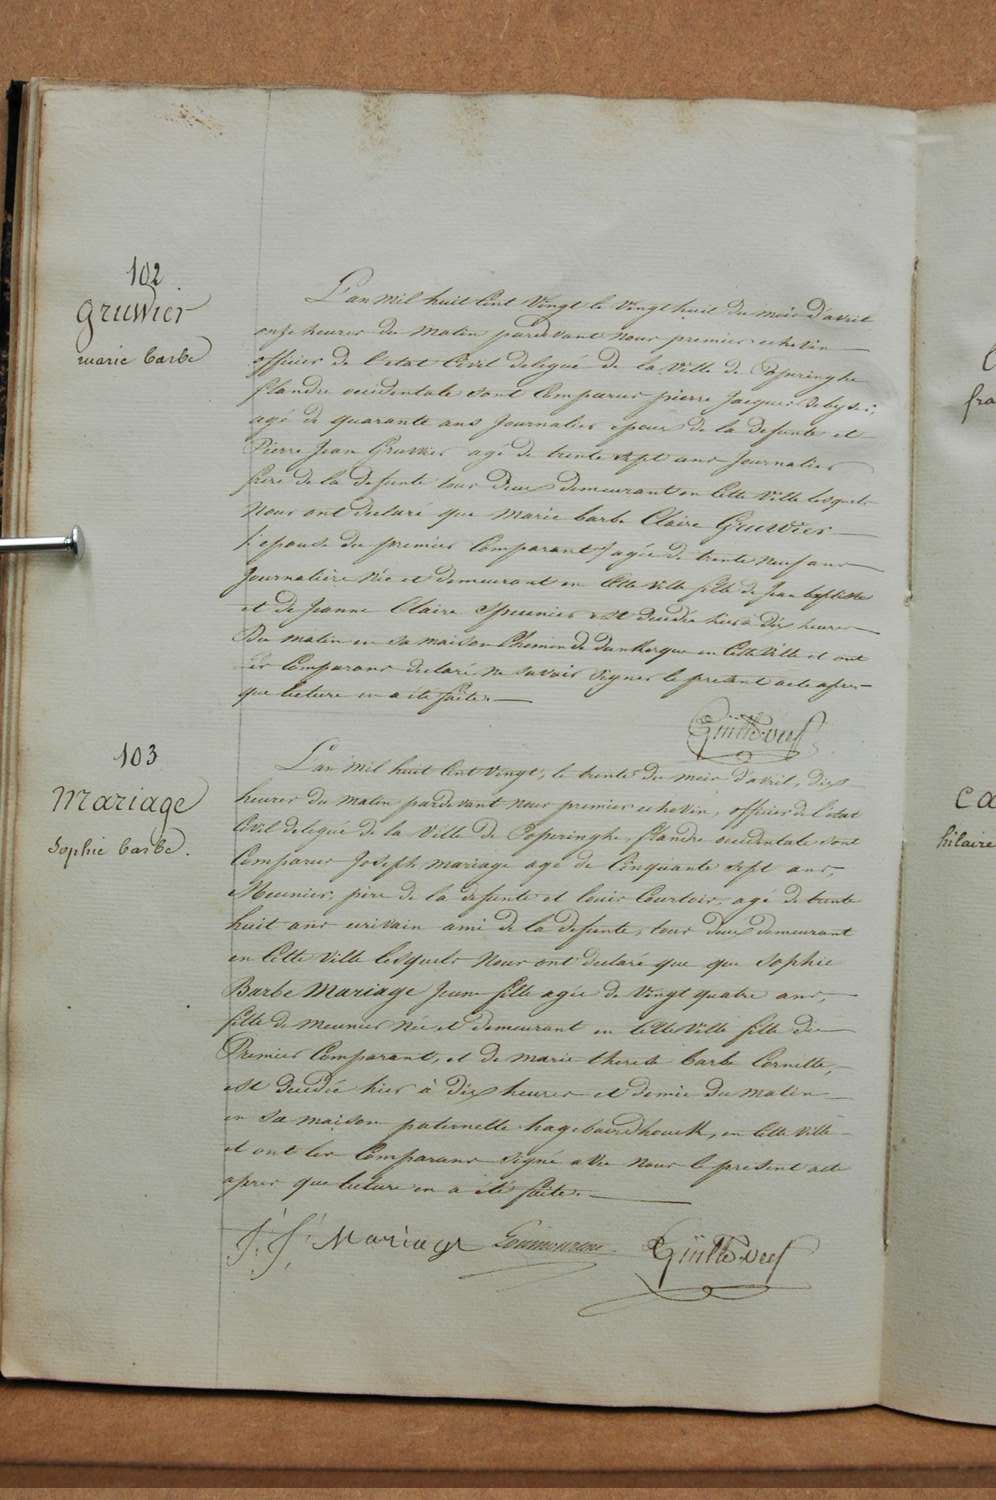 102
Gruwier
marie barbe
L'an mil huit Cent Vingt le Vingt huit du mois d'avril
onze heures du Matin pardevant Nous premier echevin
officier de l'etat Civil delegué de la Ville de Poperinghe
flandre occidentale sont Comparus pierre Jacques
agé de quarante ans Journalier epoux de la defunte et
Pierre Jean Gruwier agé de trente sept ans Journalier
frere de la defunte tous deux demeurant en Cette Ville lesquels
Nous ont declaré que Marie barbe Claire Gruwier
l'epouse du premier Comparant agée de trente Neuf ans
Journaliere Née et demeurant en Cette Ville fille de Jean baptiste
et de Jeanne Claire est decedée hier à dix heures
du matin en sa maison Chemin de dunkerque en Cette Ville et ont
les Comparans declaré ne savoir signer le present acte apres
que lecture en a été faite.
103
Mariage
Sophie barbe.
L'an mil huit Cent vingt, le trente du mois d'avril, dix
heures du matin pardevant nous premier echevin, officier de l'etat
Civil delegué de la Ville de Poperinghe, flandre occidentale sont
Comparus Joseph Mariage agé de Cinquante sept ans,
Meunier, père de la defunte et louis Courtois, agé de trente
huit ans ecrivain ami de la defunte, tous deux demeurant
en Cette Ville lesquels Nous ont declaré que que Sophie
Barbe Mariage Jeune fille agée de Vingt quatre ans,
fille de meunier Née et demeurant en Cette Ville fille du
Premier Comparant, et de marie therese barbe Cornette,
est decedée hier à dix heures et demie du matin
en sa maison paternelle en Cette Ville
et ont les Comparans signé avec Nous le present acte
apres que lecture en a été faite.
J. J. Mariage
fra
ca
hilaire